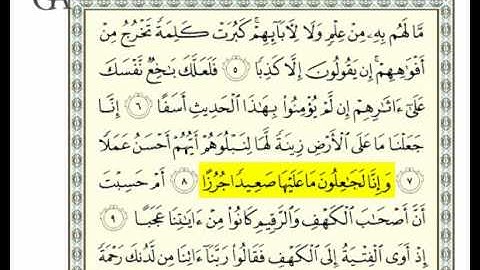 مَّا لَهُم بِهِۦ مِنْ عِلْمٍ وَلَا لِـَٔابَآئِهِمْ ۚ كَبُرَتْ كَلِمَةً تَخْرُجُ مِنْ
أَفْوَٰهِهِمْ ۚ إِن يَقُولُونَ إِلَّا كَذِبًا ٥ فَلَعَلَّكَ بَـٰخِعٌ نَّفْسَكَ
عَلَىٰٓ ءَاثَـٰرِهِمْ إِن لَّمْ يُؤْمِنُوا۟ بِهَـٰذَا ٱلْحَدِيثِ أَسَفًا ٦ إِنَّا
جَعَلْنَا مَا عَلَى ٱلْأَرْضِ زِينَةً لَّهَا لِنَبْلُوَهُمْ أَيُّهُمْ أَحْسَنُ عَمَلًا
٧ وَإِنَّا لَجَـٰعِلُونَ مَا عَلَيْهَا صَعِيدًا جُرُزًا ٨ أَمْ حَسِبْتَ
أَنَّ أَصْحَـٰبَ ٱلْكَهْفِ وَٱلرَّقِيمِ كَانُوا۟ مِنْ ءَايَـٰتِنَا عَجَبًا ٩
إِذْ أَوَى ٱلْفِتْيَةُ إِلَى ٱلْكَهْفِ فَقَالُوا۟ رَبَّنَآ ءَاتِنَا مِن لَّدُنكَ رَحْمَةً